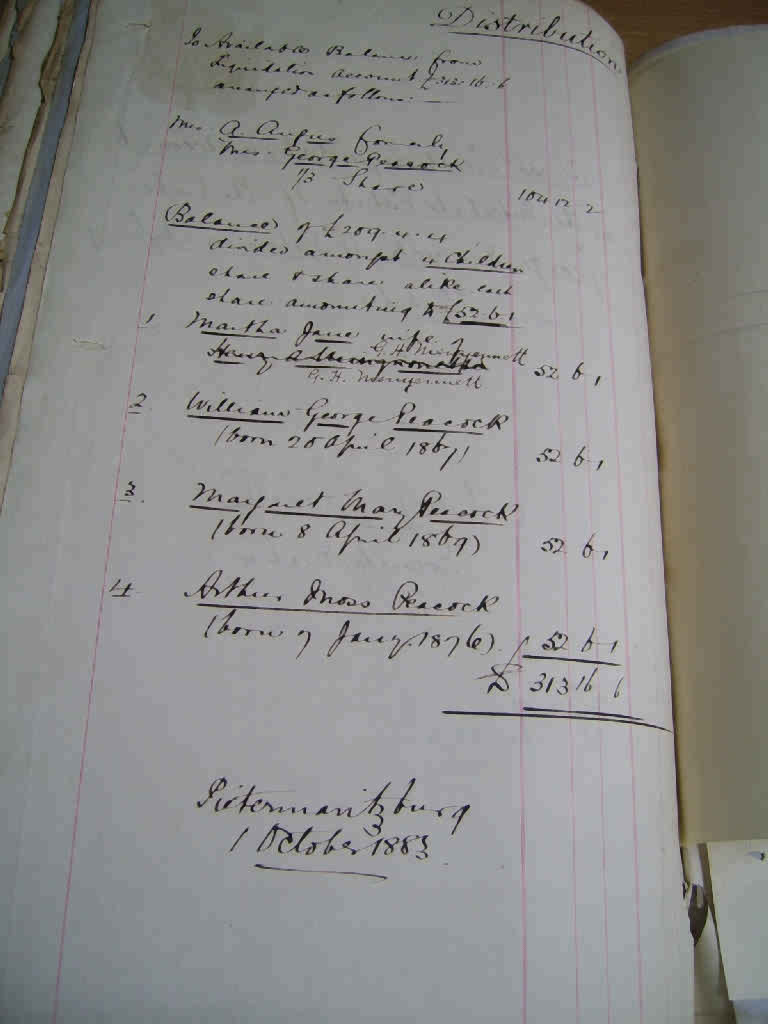 Distribution
To Available Balance from
Liquidation Account £313.16.6
arranged as follows:—
Mrs. A. Angus formerly
Mrs. George Peacock
1/3 Share 104 12 2
Balance of £209.4.4
divided amongst 4 Children
share & share alike each
share amounting to £52 6 1
1 Martha Jane wife of
G. H. Merryennett 52 6 1
G. H. Merryennett
2. William George Peacock
(born 20 April 1867) 52 6 1
3. Margaret Mary Peacock
(born 8 April 1869) 52 6 1
4 Arthur Moss Peacock
(born 7 Jany. 1876). 52 6 1
£ 313 16 6
Pietermaritzburg
1 October 1883